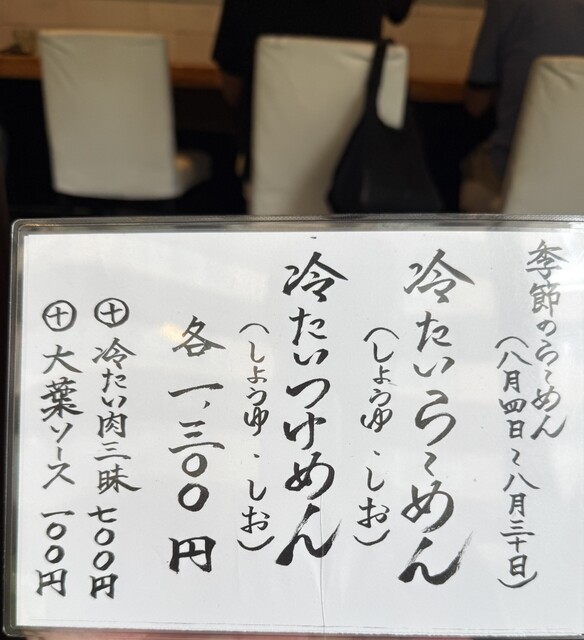 季節のらーめん
(八月四日〜八月三十日)
冷たいらーめん
(しょうゆ・しお)
冷たいつけめん
(しょうゆ・しお)
各一、三〇〇円
㊉冷たい肉三昧 七〇〇円
㊉大葉ソース 一〇〇円